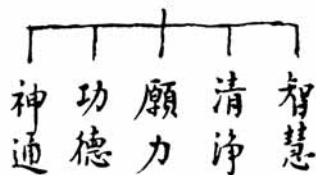 智慧
清淨
願力
功德
神通